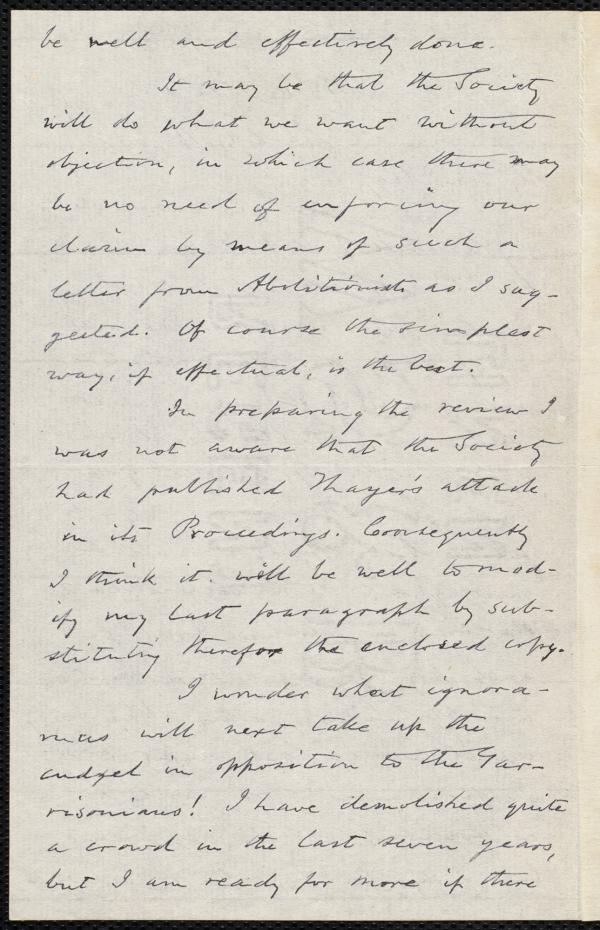 be well and effectively done.
It may be that the Society
will do what we want without
objection, in which case there may
be no need of enforcing our
claim by means of such a
letter from Abolitionists as I sug-
gested. Of course the simplest
way, if effectual, is the best.
In preparing the review I
was not aware that the Society
had published Thayer's attack
in its Proceedings. Consequently
I think it will be well to mod-
ify my last paragraph by sub-
stituting therefor the enclosed copy.
I wonder what ignora-
mus will next take up the
cudgel in opposition to the Gar-
risonians! I have demolished quite
a crowd in the last seven years,
but I am ready for more if there